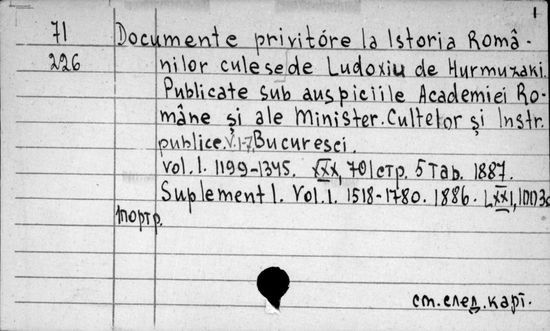 1
71 Documente privitóre la Istoria Româ-
226 nilor culese de Ludoxiu de Hurmuzaki.
Publicate sub auspiciile Academiei Ro-
mâne și ale Minister. Cultelor și Instr.
publice. V. 1-7. Bucuresci.
vol. I. 1199-1345. XXX, 701 стр. 5 таб. 1887.
Suplement I. Vol. I. 1518-1780. 1886.
1 портр.
см. след. карт.